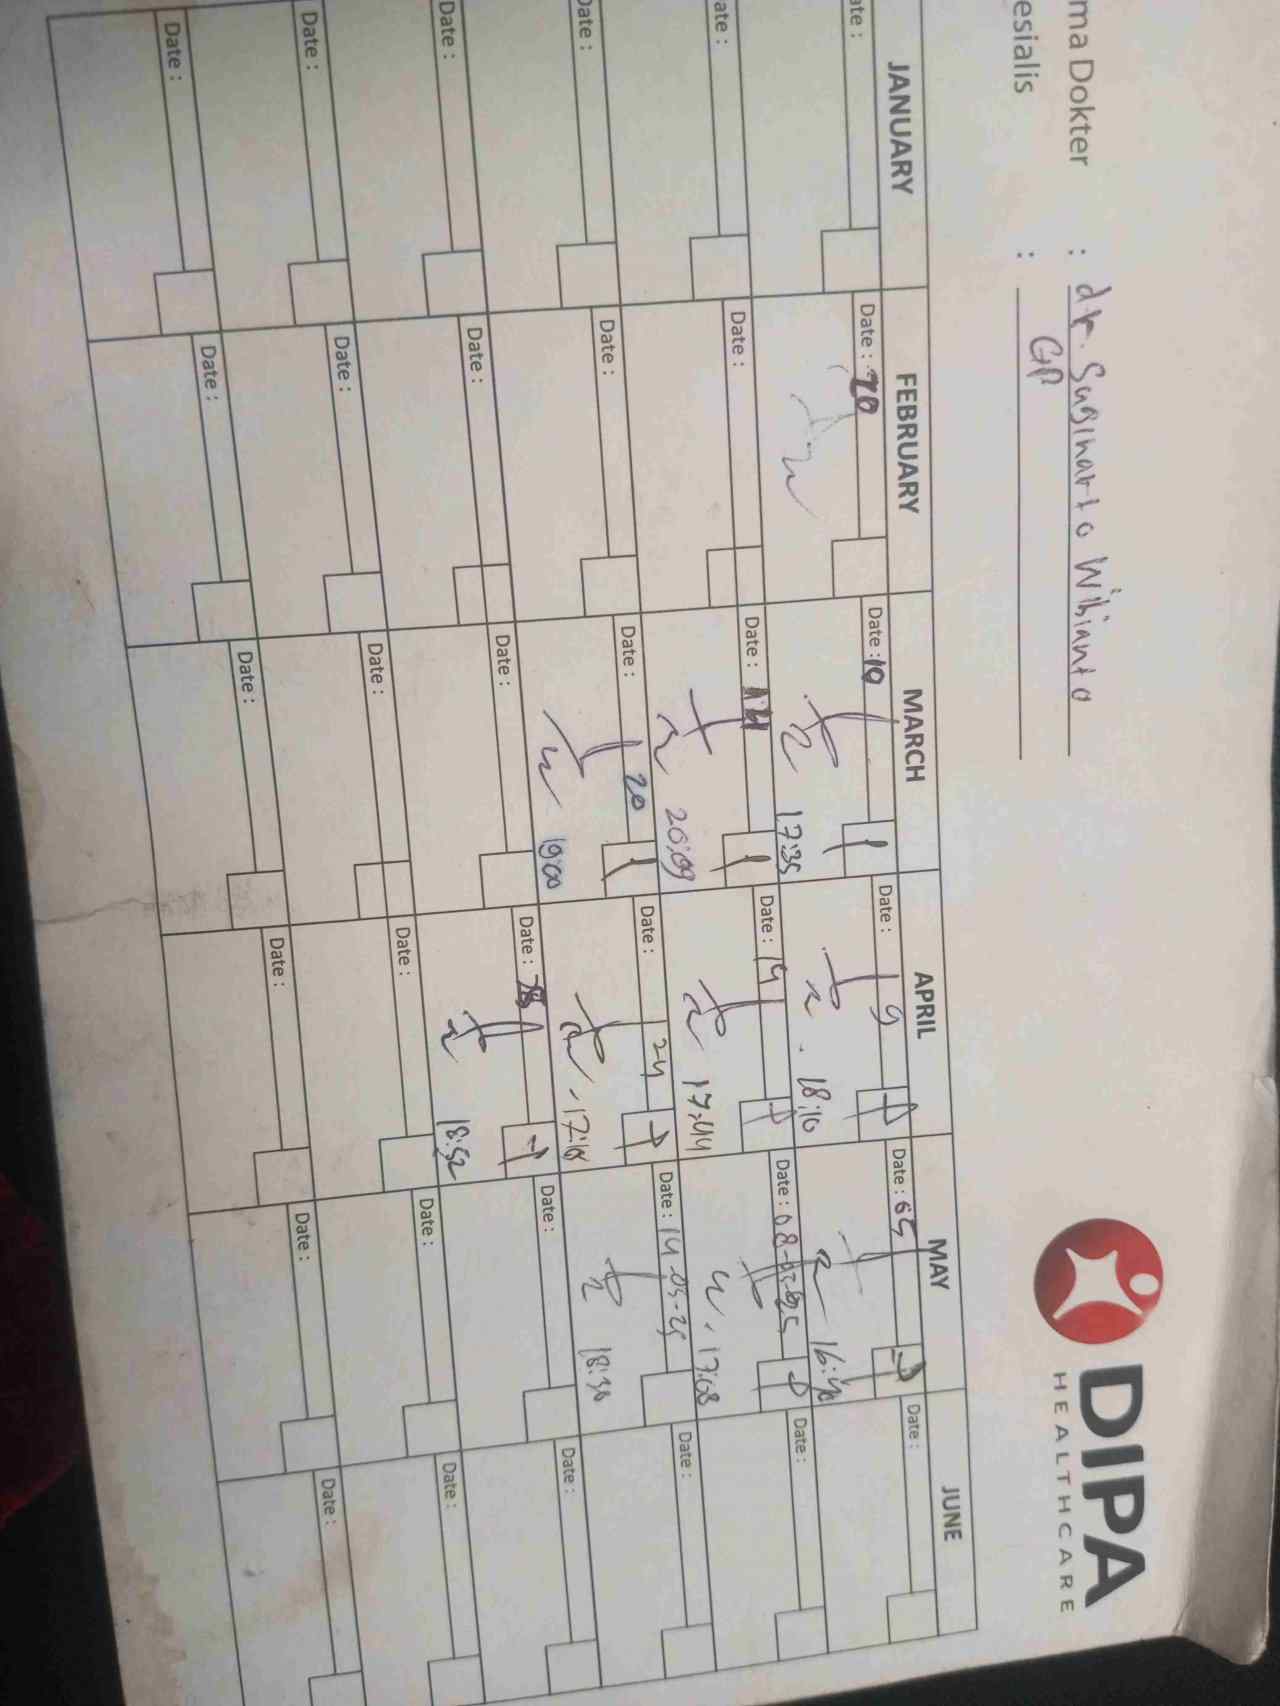 DIPA
HEALTHCARE
ma Dokter : dr. Suginarto Wibianto
esialis : GP
JANUARY FEBRUARY MARCH APRIL MAY JUNE
ate : Date : 20 Date : 10 Date : 9 Date : 65 Date :
17:35 18:10 16:40
ate : Date : Date : Date : 14 Date : 08-05-2025 Date :
20:09 17:44 17:08
Date : Date : Date : 20 Date : 24 Date : 14-05-25 Date :
19:00 17:18 18:30
Date : Date : Date : Date : 28 Date : Date :
18:52
Date : Date : Date : Date : Date : Date :
Date : Date : Date : Date : Date : Date :